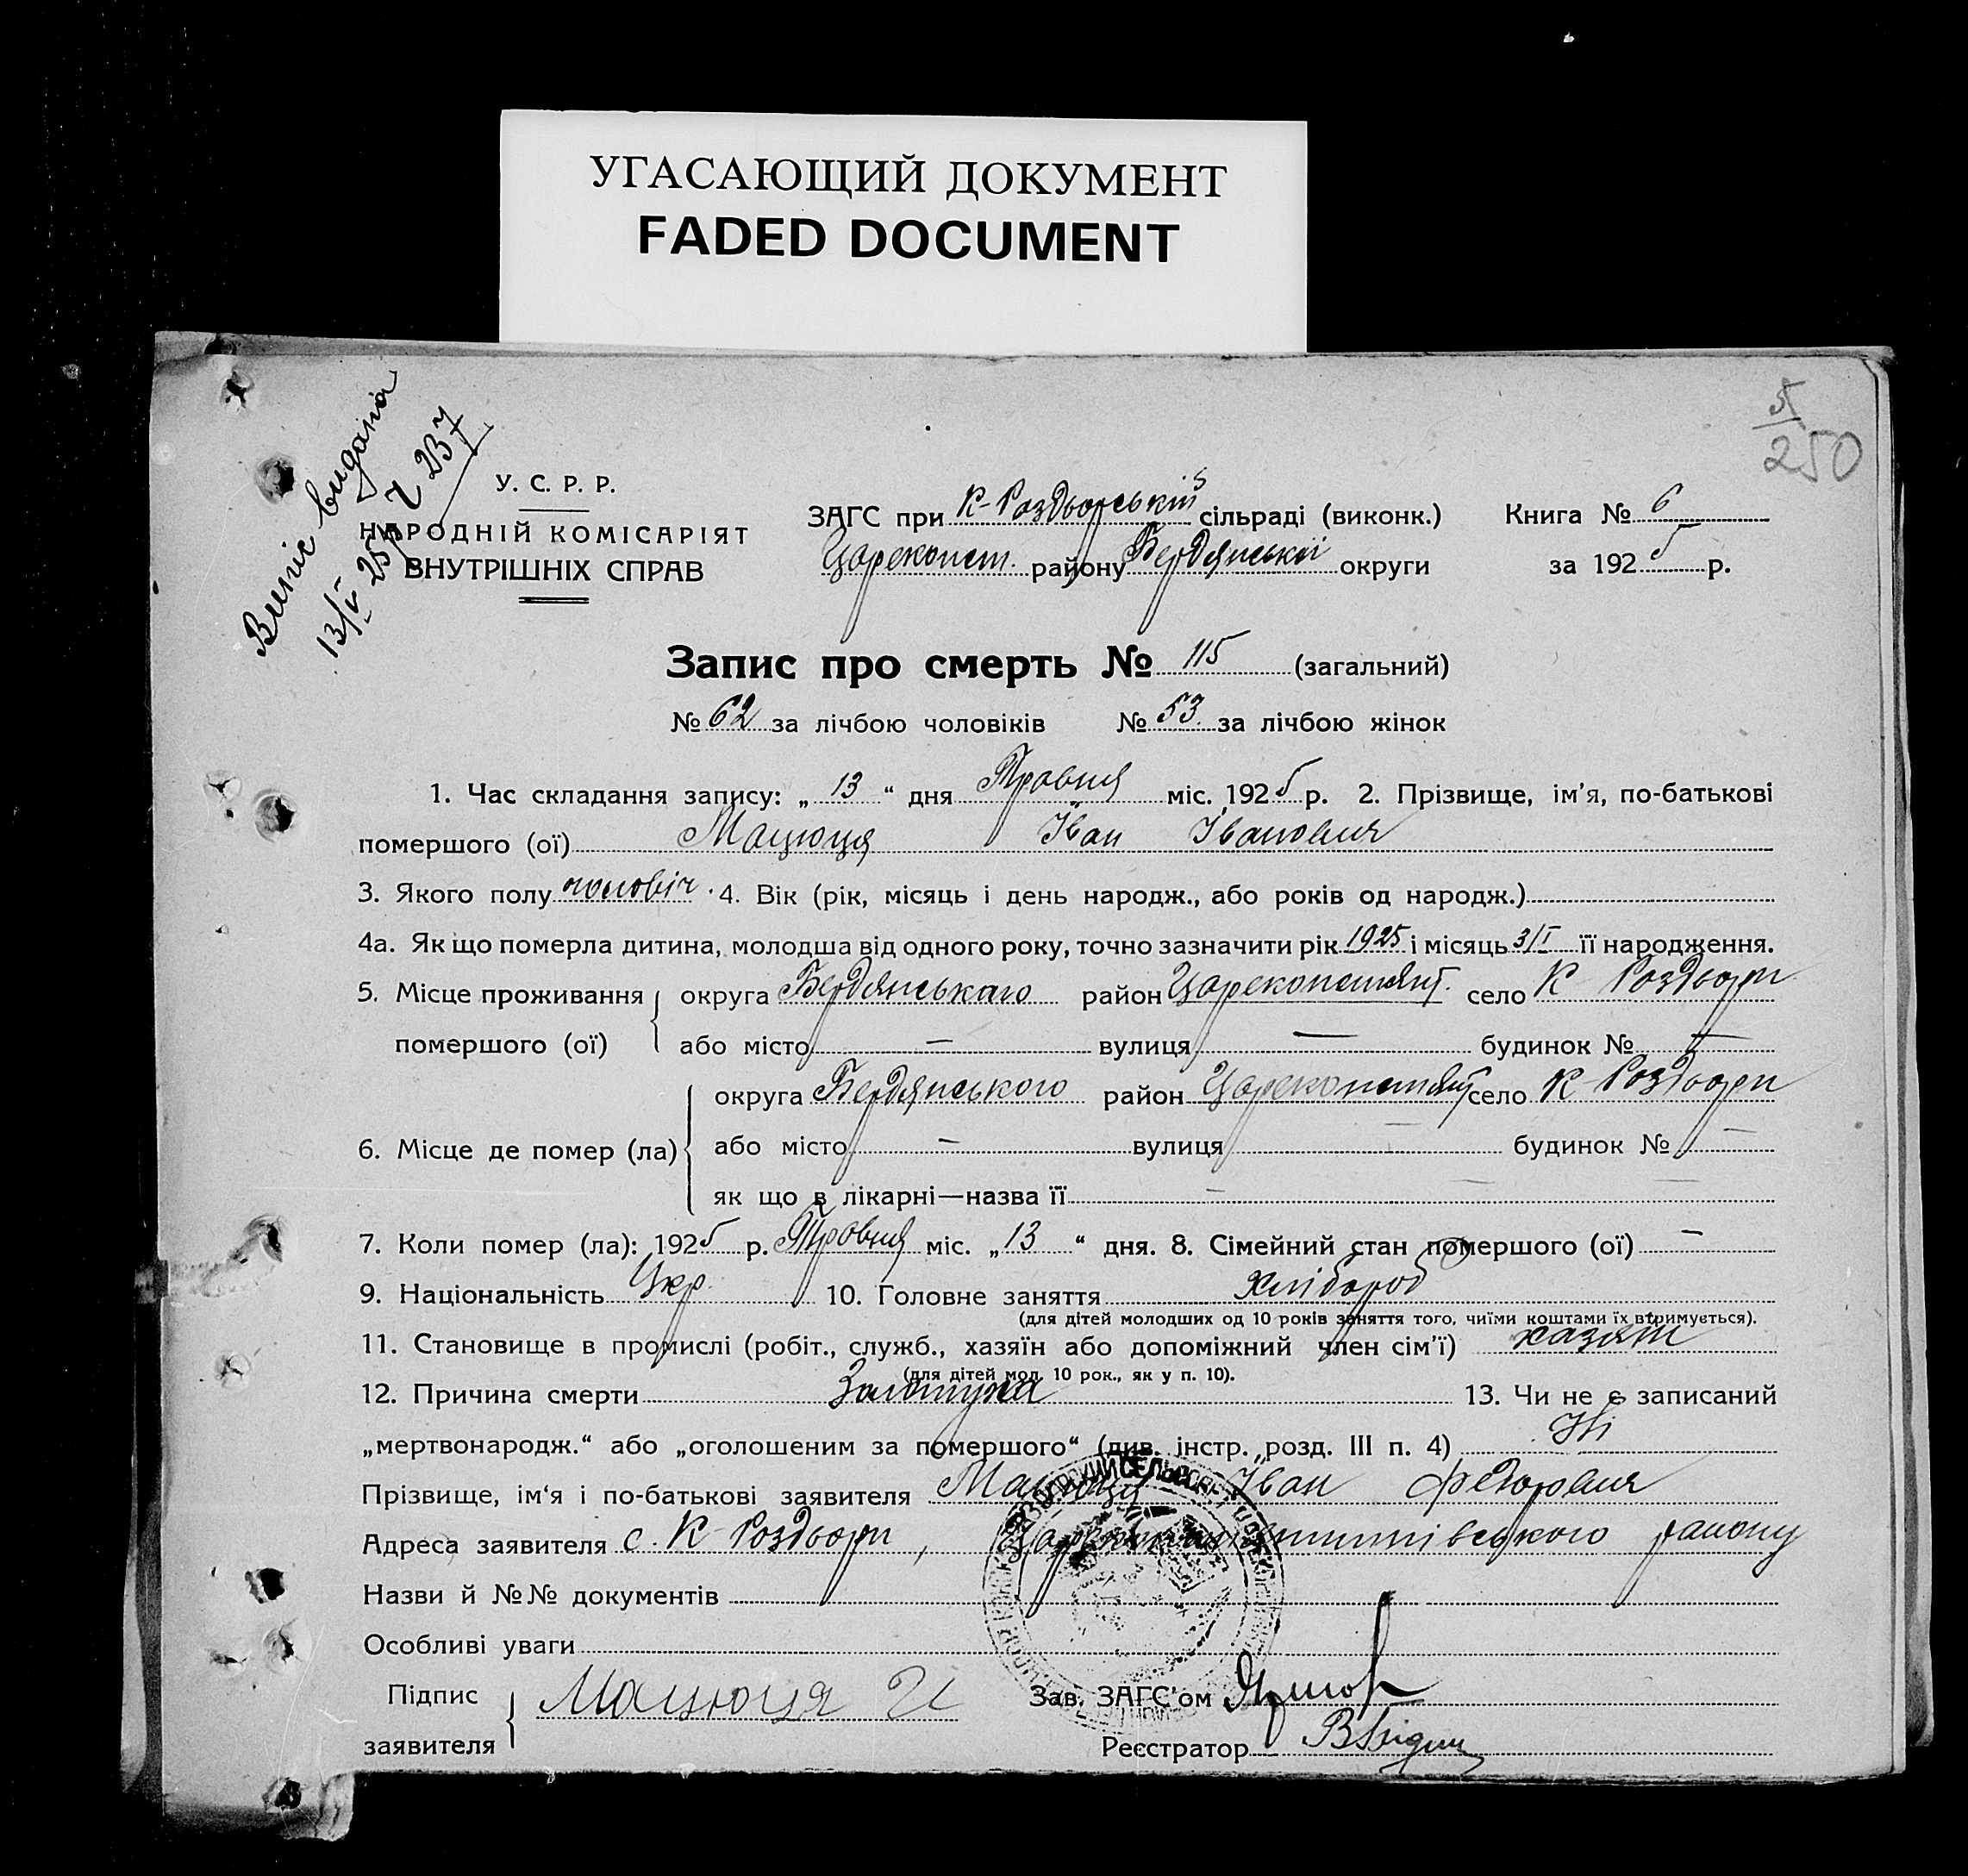 УГАСАЮЩИЙ ДОКУМЕНТ
FADED DOCUMENT
5/250
Випис видана
13/V 25 р № 237
У. С. Р. Р.
НАРОДНІЙ КОМІСАРІЯТ
ВНУТРІШНІХ СПРАВ
ЗАГС при К-Роздьорській сільраді (виконк.) Книга № 6
Цареконст. району Бердянської округи за 1925 р.
Запис про смерть № 115 (загальний)
№ 62 за лічбою чоловіків № 53 за лічбою жінок
1. Час складання запису: „ 13 “ дня Травня міс. 1925 р. 2. Прізвище, ім'я, по-батькові
помершого (ої) Мацюця Іван Івановия
3. Якого полу чоловіч. 4. Вік (рік, місяць і день народж., або років од народж.)
4а. Як що померла дитина, молодша від одного року, точно зазначити рік 1925 і місяць 3/I її народження.
5. Місце проживання округа Бердянськаго район Цареконстянт. село К Роздьори
помершого (ої) або місто — вулиця — будинок № —
округа Бердянського район Цареконстянт село К-Роздьори
6. Місце де помер (ла) або місто — вулиця — будинок № —
як що в лікарні—назва її —
7. Коли помер (ла): 1925 р. Травня міс. „ 13 “ дня. 8. Сімейний стан помершого (ої) —
9. Національність Укр. 10. Головне заняття хлібороб
(для дітей молодших од 10 років заняття того, чиїми коштами їх втримується).
11. Становище в промислі (робіт., служб., хазяїн або допоміжний член сім'ї) хазяїн
(для дітей мол. 10 рок., як у п. 10).
12. Причина смерти Золотуха 13. Чи не є записаний
„мертвонародж.“ або „оголошеним за помершого“ (див. інстр. розд. III п. 4) Ні
Прізвище, ім'я і по-батькові заявителя Мацюця Іван Федоровия
Адреса заявителя с. К-Роздьори, Цареконстянтинівського району
Назви й №№ документів
Особливі уваги
Підпис заявителя Мацюця И
Зав. ЗАГС'ом
Реєстратор